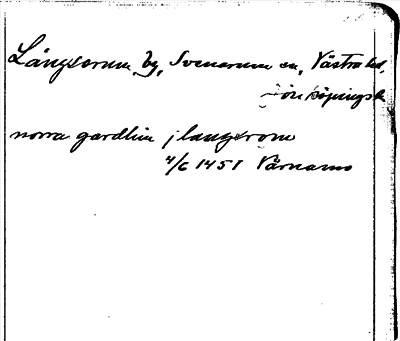 Långserum by, Svenarum sn, Västra hd,
Jönköpings l.
norra gardhin j langxrom
4/6 1451 Värnamo